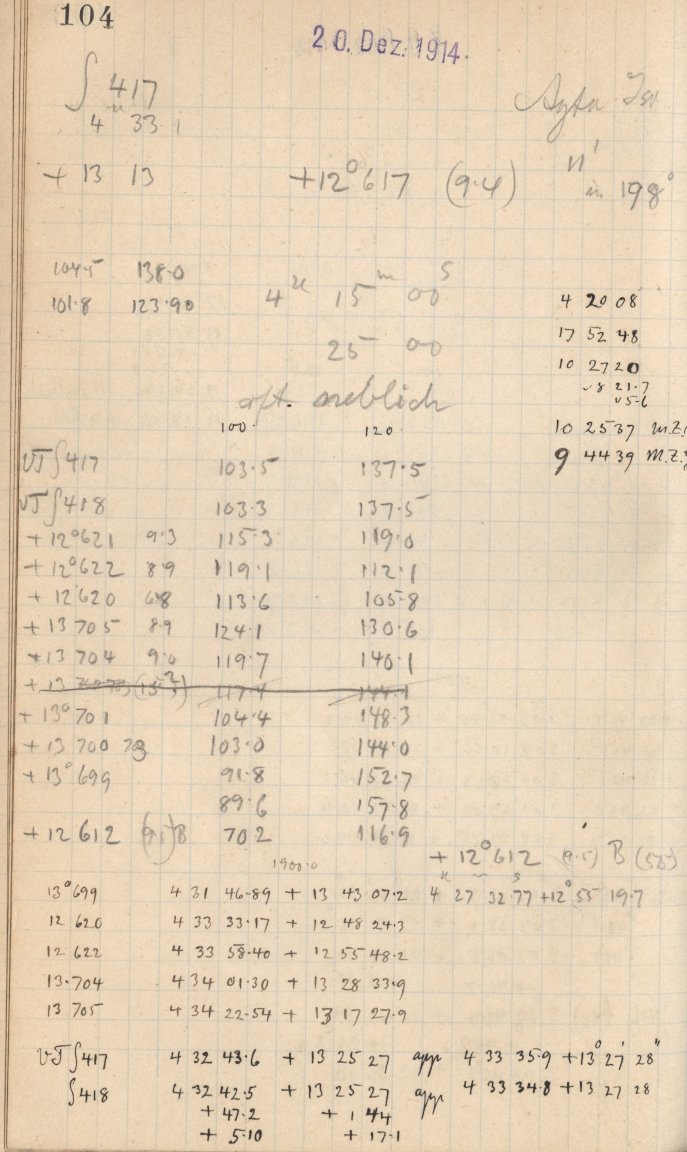 104
20. Dez. 1914.
∫ 417
4 33 1
+ 13 13 +12° 617 (9·4)
11'
in 198°
104·5 138·0
101·8 123·90
4ʰ 15ᵐ 00ˢ
25 00
4 20 08
17 52 48
10 27 20
8 21·7
5·6
10 25 37
9 44 39 M.Z.
oft. neblich
100· 120·
∫ 417 103·5 137·5
∫ 418 103·3 137·5
+ 12° 621 9·3 115·3 119·0
+ 12° 622 8·9 119·1 112·1
+ 12 620 6·8 113·6 105·8
+ 13 705 8·9 124·1 130·6
+ 13 704 9·0 119·7 140·1
+ 13 117·4 144·1
+ 13° 701 104·4 148·3
+ 13 700 103·0 144·0
+ 13° 699 91·8 152·7
89·6 157·8
+ 12 612 (9·1) B 70 2 116·9
1900·0
+ 12° 612 (9·5) B (55)
13° 699 4 31 46·89 + 13 43 07·2 4 27 32·77 +12° 55' 19·7
12 620 4 33 33·17 + 12 48 24·3
12 622 4 33 58·40 + 12 55 48·2
13·704 4 34 01·30 + 13 28 33·9
13 705 4 34 22·54 + 13 17 27·9
∫ 417 4 32 43·6 + 13 25 27 app 4 33 35·9 +13° 27' 28"
∫ 418 4 32 42·5 + 13 25 27 app 4 33 34·8 +13 27 28
+ 47·2 + 1 44
+ 5·10 + 17·1